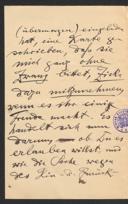 (übermorgen) eingeladen
hat, eine Karte ge-
schrieben, daß sie
mich ganz ohne
Zwang bittet,
dazu mitzunehmen,
wenn es ihr einige
Freude macht. Es
handelt sich nun
darum, ob Du es
erlauben willst und
wie die Sache wegen
des